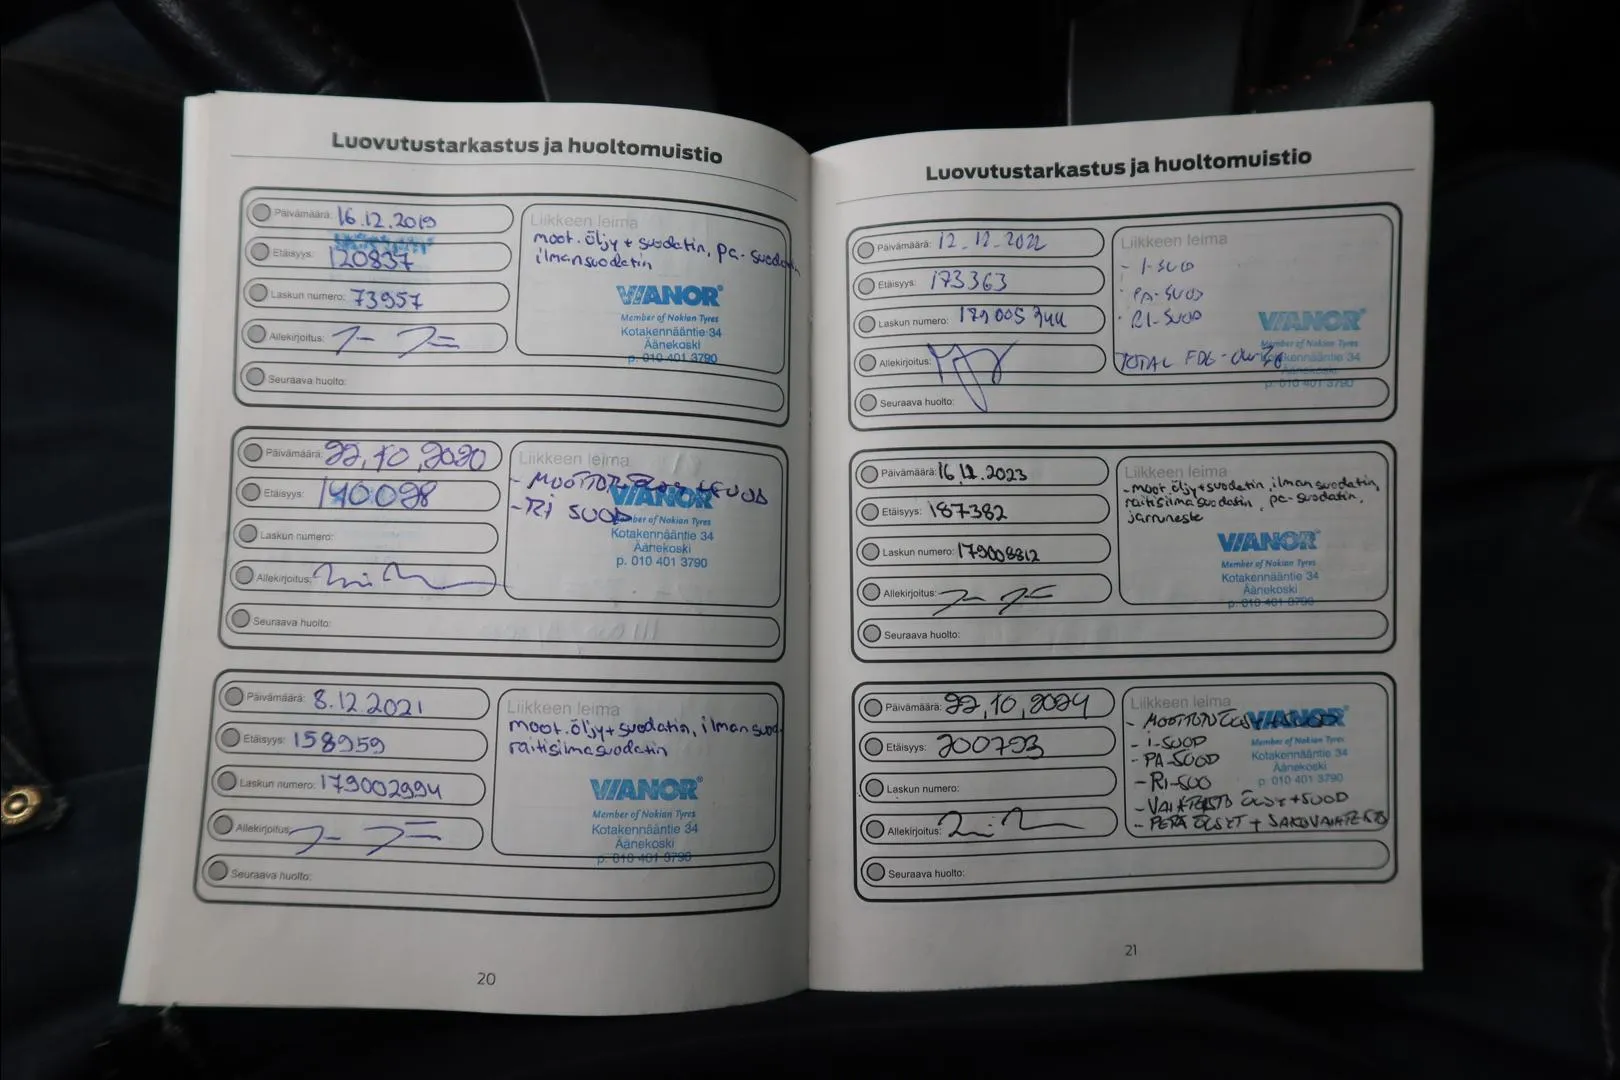 Luovutustarkastus ja huoltomuistio
Päivämäärä: 16.12.2019
Etäisyys: 120837
Laskun numero: 73957
Allekirjoitus:
Seuraava huolto:
Liikkeen leima
moot.öljy + suodatin, pa-suodatin
ilmansuodatin
VIANOR®
Member of Nokian Tyres
Kotakennääntie 34
Äänekoski
p. 010 401 3790
Päivämäärä: 22,10,2020
Etäisyys: 140098
Laskun numero:
Allekirjoitus:
Seuraava huolto:
Liikkeen leima
- RI SUOD
VIANOR
Member of Nokian Tyres
Kotakennääntie 34
Äänekoski
p. 010 401 3790
Päivämäärä: 8.12.2021
Etäisyys: 158959
Laskun numero: 179002994
Allekirjoitus:
Seuraava huolto:
Liikkeen leima
moot.öljy+suodatin, ilman suod
raitisilmasuodatin
VIANOR®
Member of Nokian Tyres
Kotakennääntie 34
Äänekoski
p. 010 401 3790
20
Luovutustarkastus ja huoltomuistio
Päivämäärä: 12.12.2022
Etäisyys: 173363
Laskun numero:
Allekirjoitus:
Seuraava huolto:
Liikkeen leima
- I-SUOD
- PA-SUOD
- RI-SUOD
TOTAL
VIANOR
Member of Nokian Tyres
Kotakennääntie 34
Äänekoski
p. 010 401 3790
Päivämäärä: 16.12.2023
Etäisyys: 187382
Laskun numero: 179008812
Allekirjoitus:
Seuraava huolto:
Liikkeen leima
-moot.öljy+suodatin, ilmansuodatin,
raitisilmasuodatin, pa-suodatin,
jarruneste
VIANOR®
Member of Nokian Tyres
Kotakennääntie 34
Äänekoski
p. 010 401 3790
Päivämäärä: 22,10,2024
Etäisyys: 200793
Laskun numero:
Allekirjoitus:
Seuraava huolto:
Liikkeen leima
- MOOTTORIÖLJY+SUOD
- I-SUOD
- PA-SUOD
- RI-SUO
- VAIHTEISTO ÖLJY+SUOD
- PERÄ ÖLJYT + JAKOVAIHTEISTO
VIANOR
Member of Nokian Tyres
Kotakennääntie 34
Äänekoski
p. 010 401 3790
21